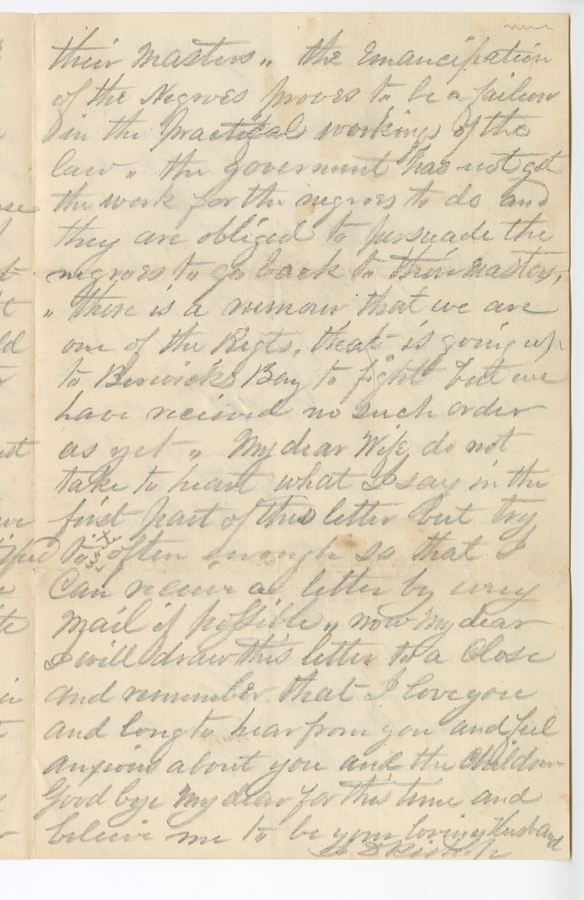 their Masters,, the Emancipation
of the Negroes proves to be a failure
in the practicals workings of the
law,, the goverment has not got
the work for the negroes to do and
they are obliged to persuade the
negroes to go back to their Masters,
,, there is a rumour that we are
one of the Regts. that is going up
to Berwicks Bay to fight but we
have recieved no such order
as yet ,, My dear Wife do not
take to heart what I say in the
first part of this letter but try
to write often enough so that I
Can receive a letter by every
Mail if possible,, now My dear
I will draw this letter to a Close
and remember that I love you
and long to hear from you and feel
anxious about you and the Children
Good bye My dear for this time and
believe me to be your loving Husband